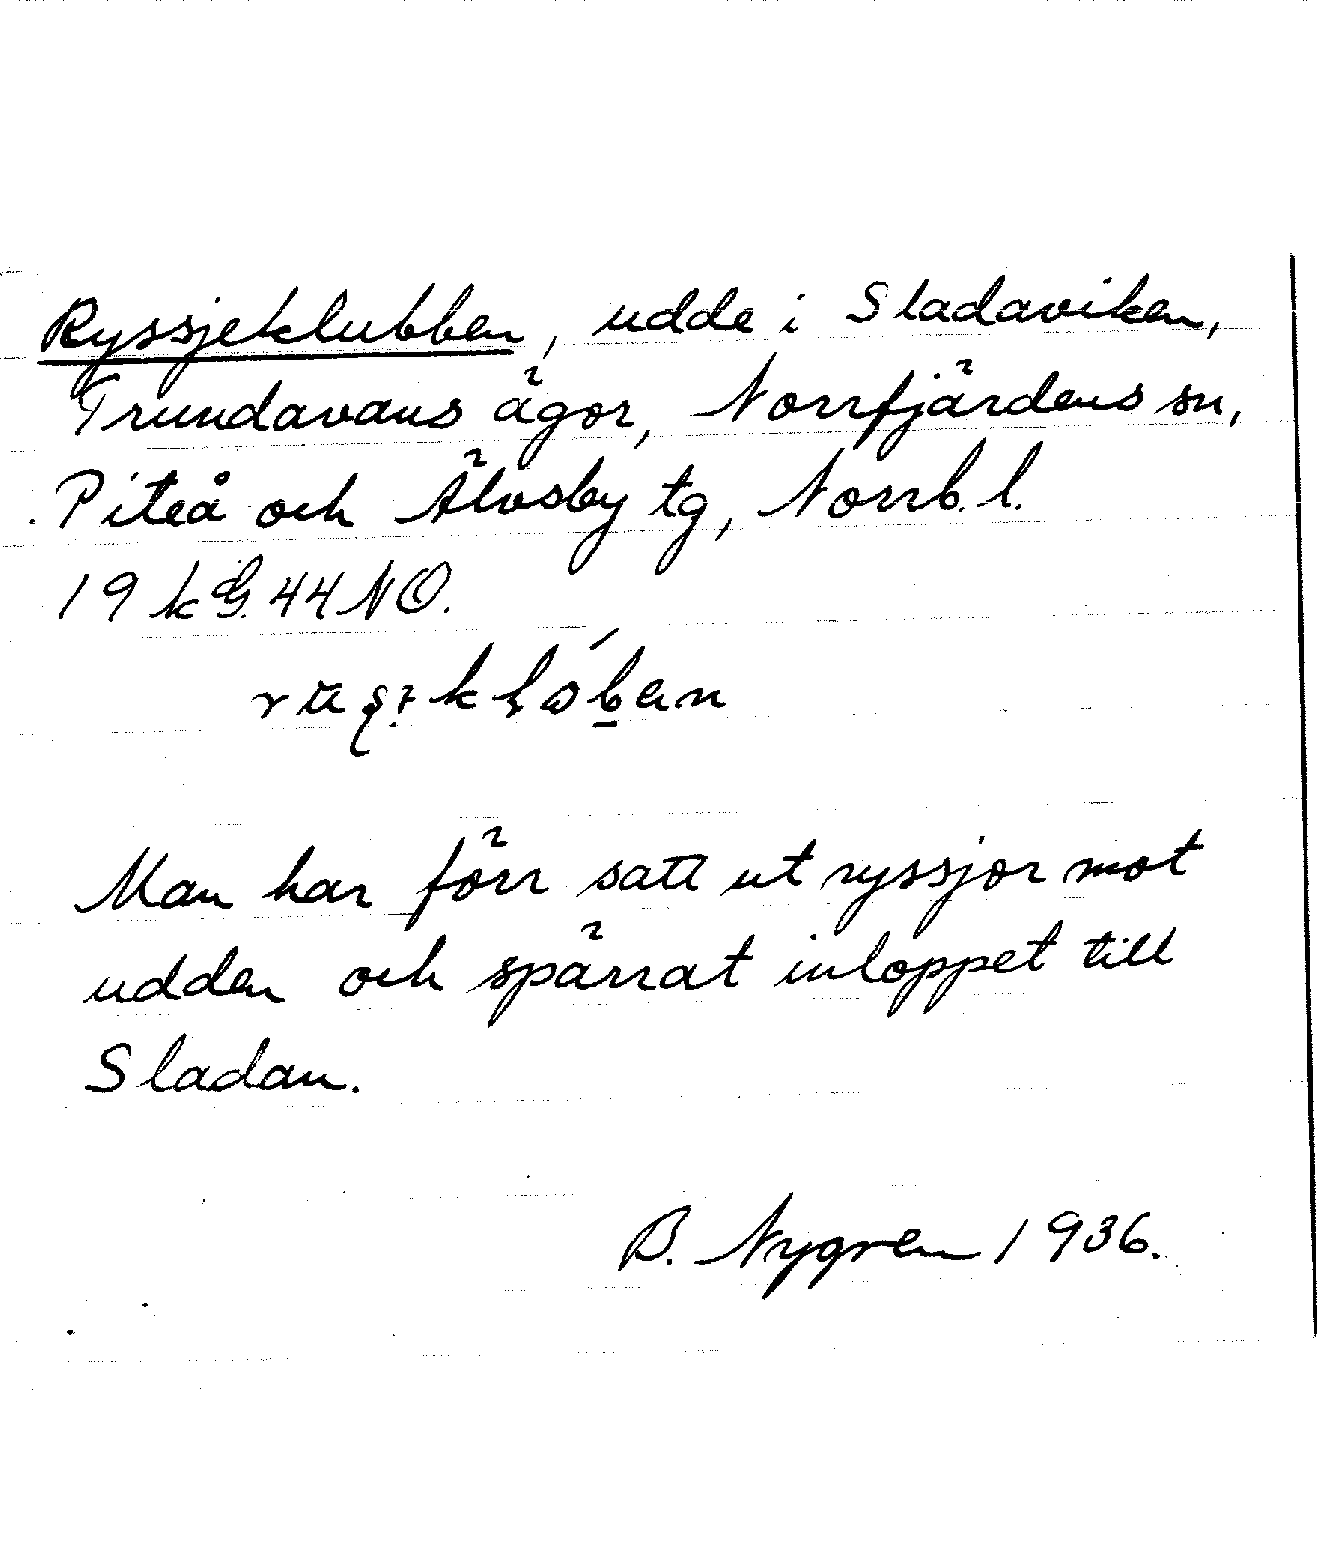 Ryssjeklubben, udde i Sladaviken,
Trundavans ägor, Norrfjärdens sn,
Piteå och Älvsby tg, Norrb. l.
19 k G. 44 NO.
Man har förr satt ut ryssjor mot
udden och spärrat inloppet till
Sladan.
B. Nygren 1936.